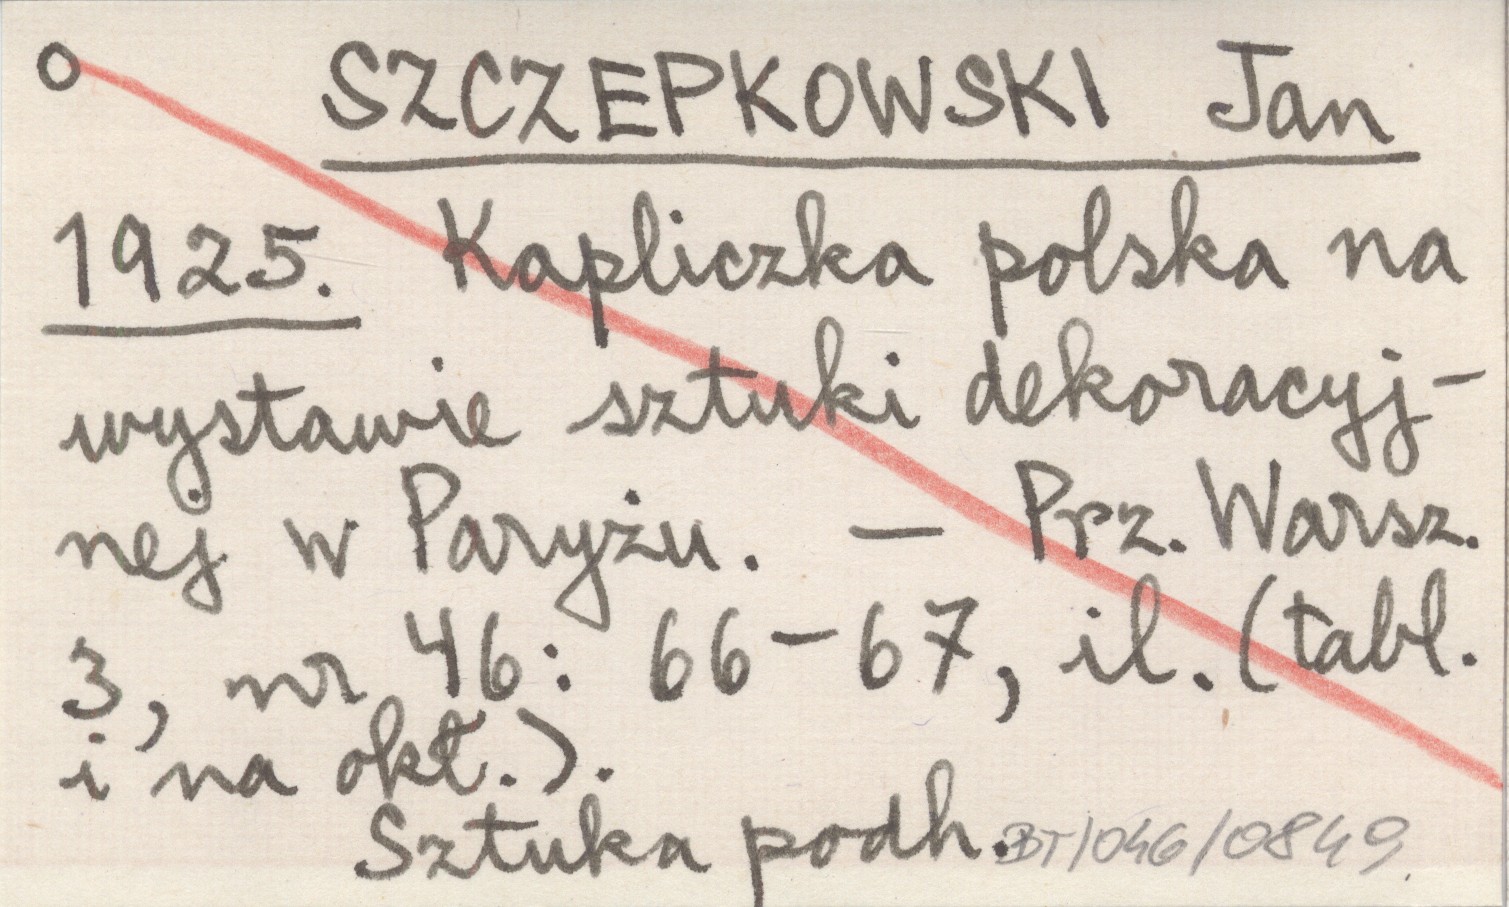 o SZCZEPKOWSKI Jan
1925. Kapliczka polska na
wystawie sztuki dekoracyj-
nej w Paryżu. — Prz. Warsz.
3, nr 46: 66-67, il. (tabl.
i na okł.).
Sztuka podh. BT/046/0849